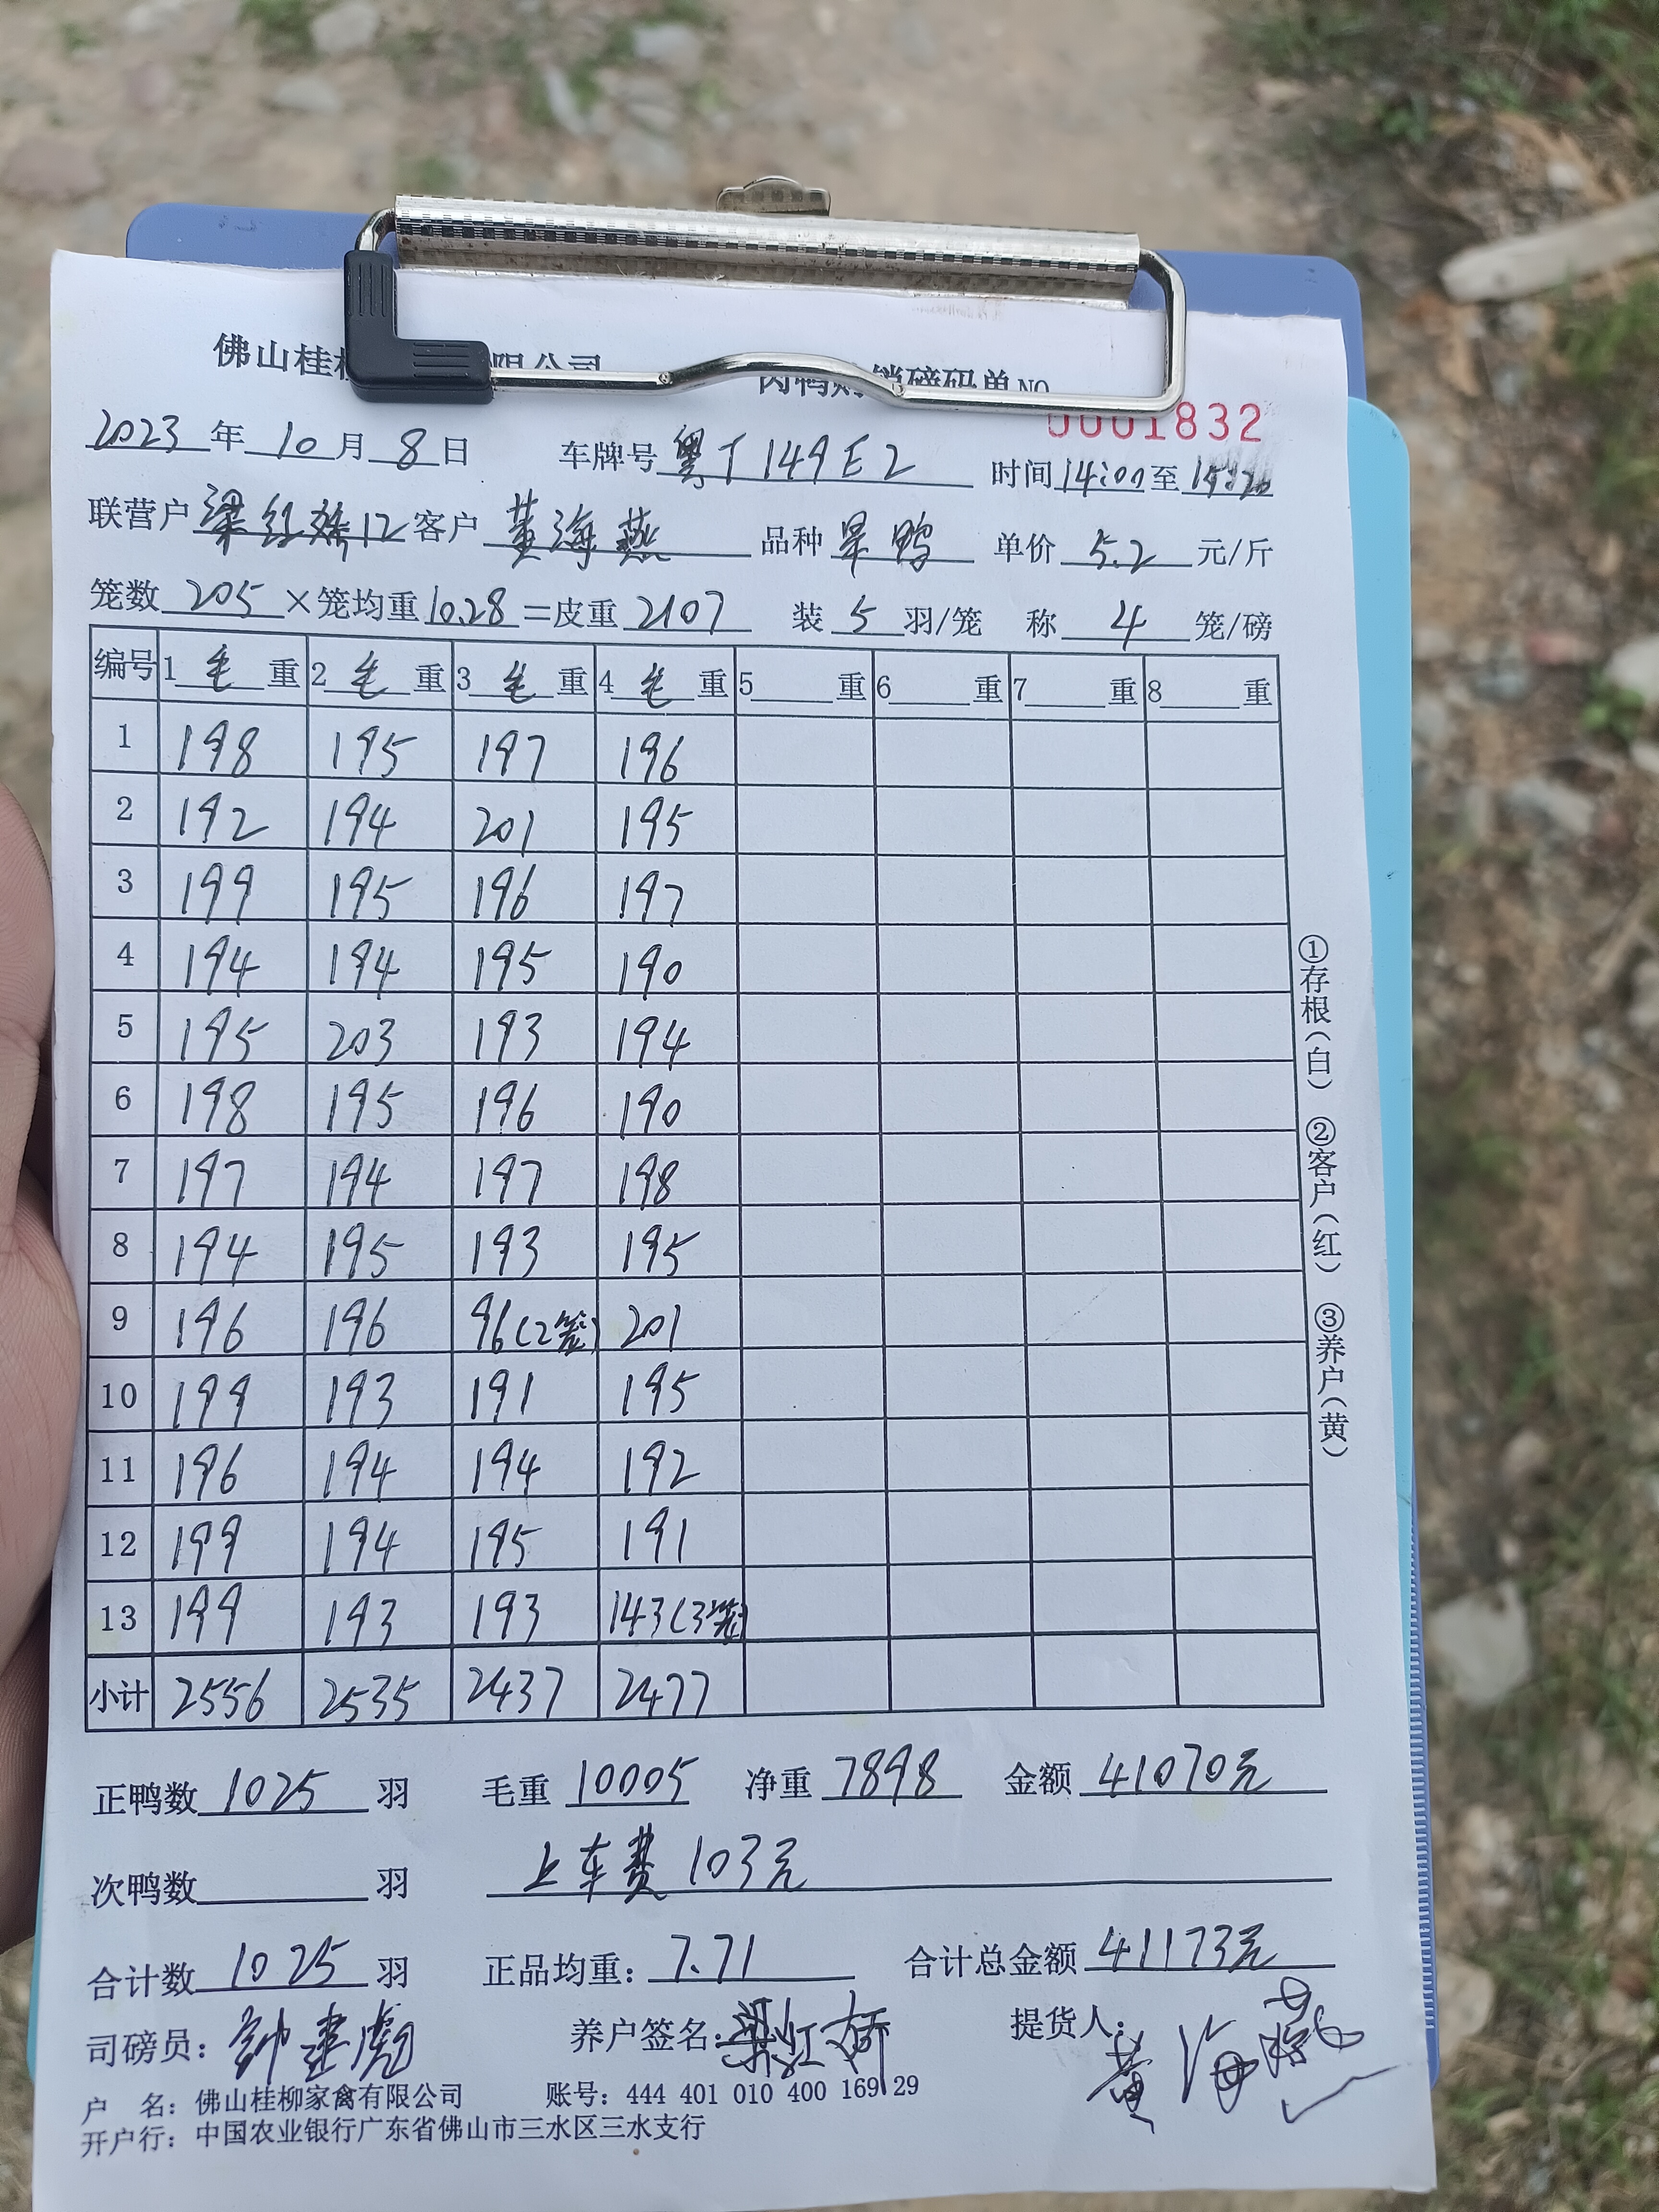 佛山桂 限公司 肉鸭 销磅码单NO
0001832
2023年10月8日 车牌号粤T149E2 时间14:00至
联营户梁红娇12 客户黄海燕 品种旱鸭 单价5.2元/斤
笼数205×笼均重10.28=皮重2107 装5羽/笼 称4笼/磅
编号 1毛重 2毛重 3毛重 4毛重 5重 6重 7重 8重
1 198 195 197 196
2 192 194 201 195
3 199 195 196 197
4 194 194 195 190
5 195 203 193 194
6 198 195 196 190
7 197 194 197 198
8 194 195 193 195
9 196 196 96(2笼) 201
10 199 193 191 195
11 196 194 194 192
12 199 194 195 191
13 199 193 193 143(3笼)
小计 2556 2535 2437 2477
①存根(白) ②客户(红) ③养户(黄)
正鸭数1025羽 毛重10005 净重7898 金额41070元
次鸭数 羽 上车费103元
合计数1025羽 正品均重:7.71 合计总金额41173元
司磅员:钟建彪 养户签名:梁红娇 提货人:黄海燕
户 名:佛山桂柳家禽有限公司 账号:444 401 010 400 169 29
开户行:中国农业银行广东省佛山市三水区三水支行